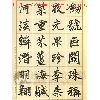 劍號巨闕珠稱
夜光果珍李柰
菜重芥薑海鹹
河淡鱗潛羽翔